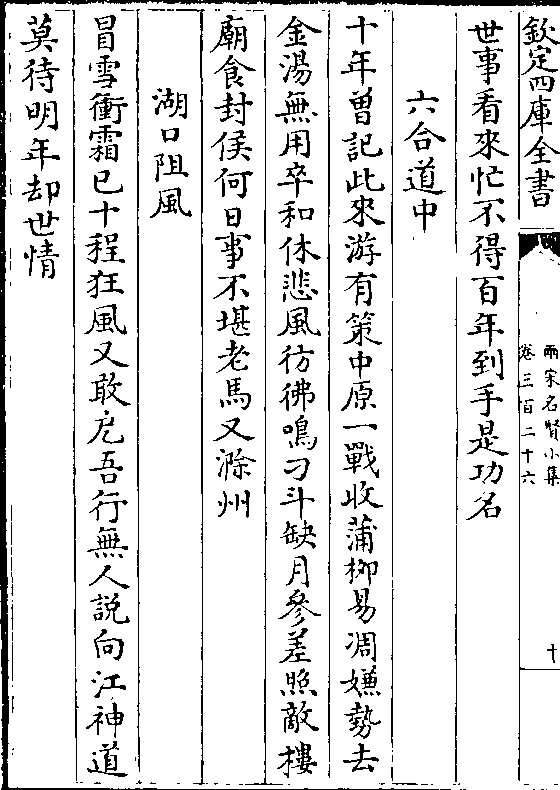 欽定四庫全書
兩宋名賢小集
卷三百二十六
十
世事看來忙不得百年到手是功名
六合道中
十年曾記此來游有策中原一戰收蒲柳易凋嫌勢去
金湯無用卒和休悲風彷彿鳴刁斗缺月參差照敵樓
廟食封侯何日事不堪老馬又滁州
湖口阻風
冒雪衝霜已十程狂風又敢戹吾行無人説向江神道
莫待明年却世情